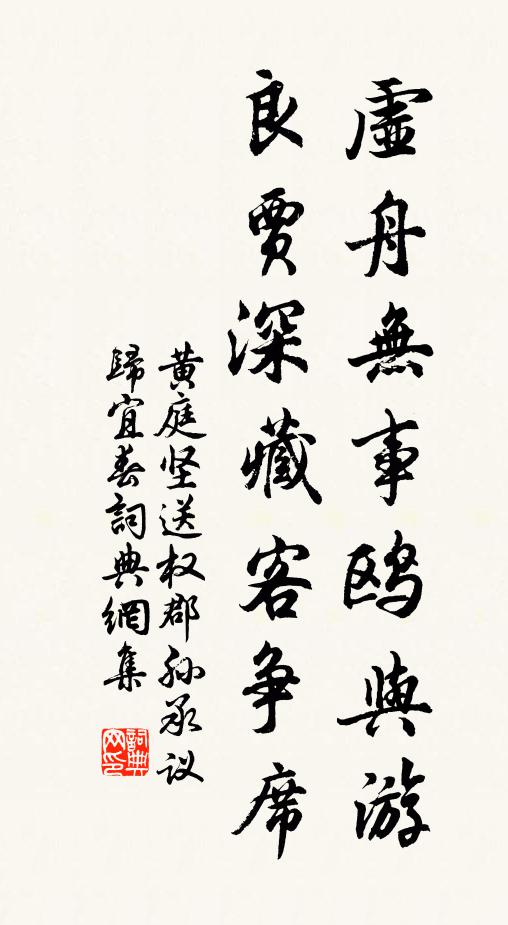 虛舟無事鸥與游
良賈深藏客争席
黄庭坚送权郡孙承议
歸宜春詞典網集
詞典网印